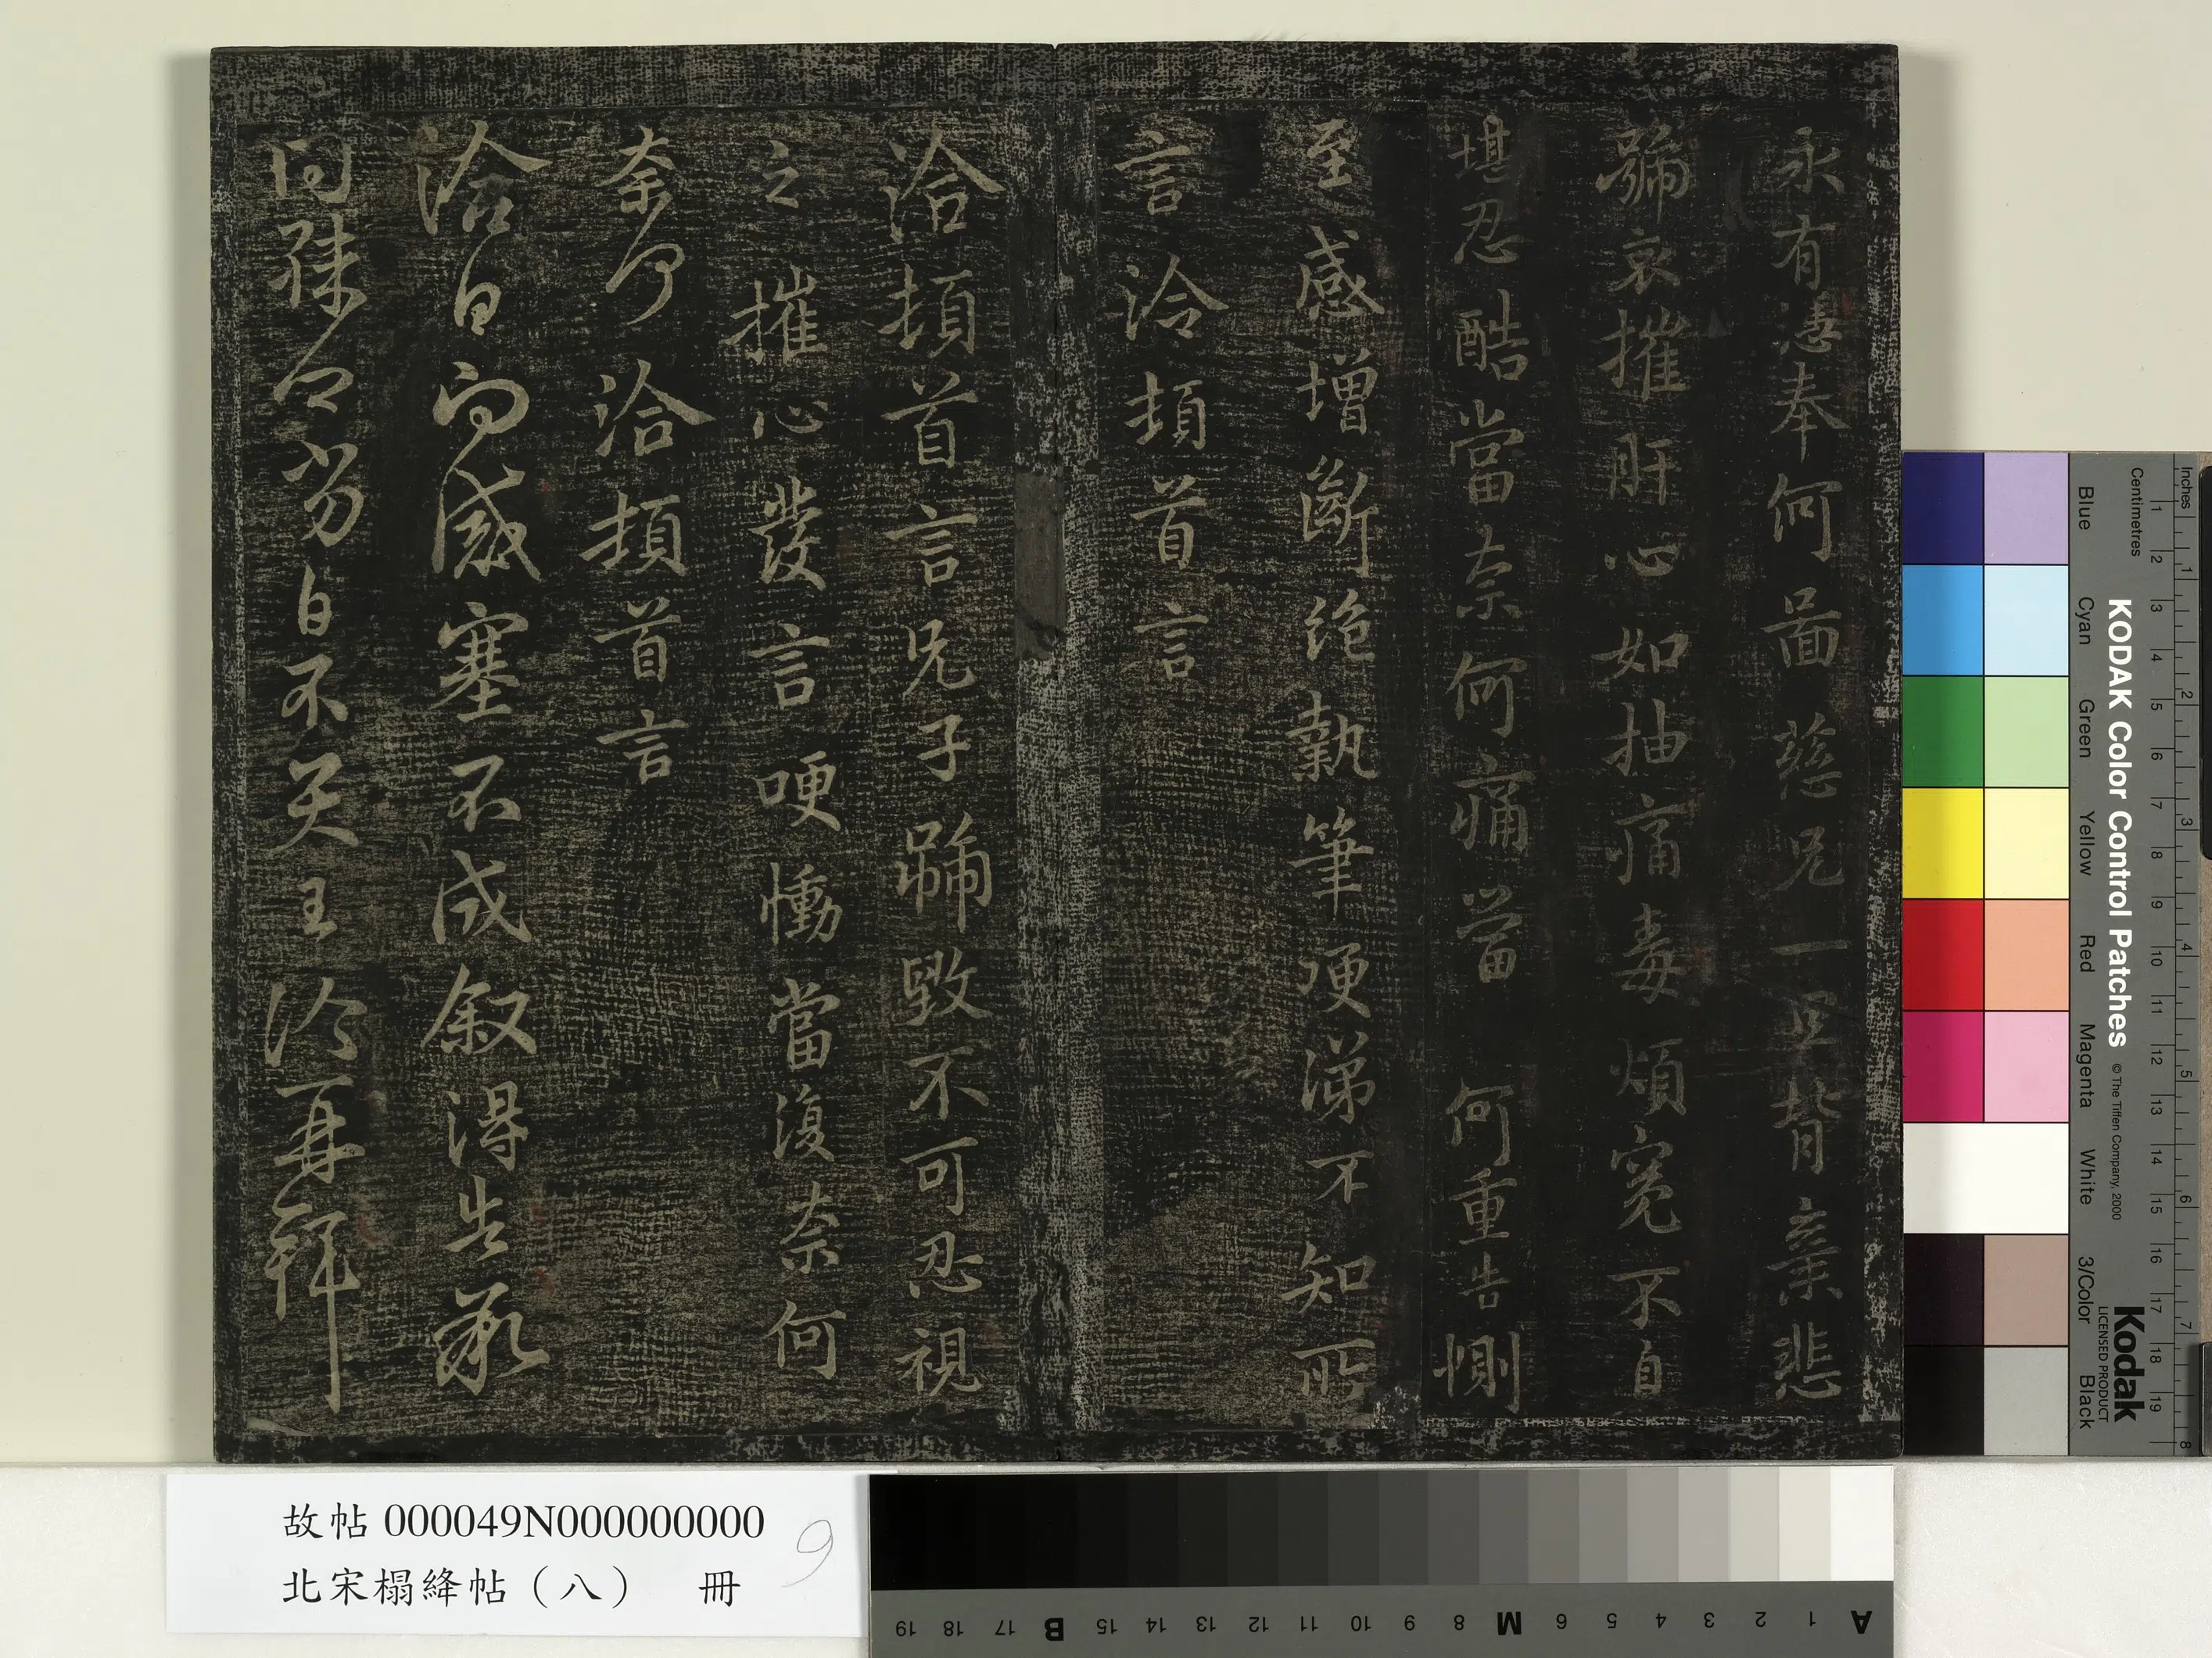 永有憑奉何圖慈兄一旦背棄悲
號哀摧肝心如抽痛毒煩冤不自
堪忍酷當奈何痛當何重告惻
至感增斷絕執筆哽涕不知所
言洽頓首言
洽頓首言兄子號毀不可忍視
之摧心發言哽慟當復奈何
奈何洽頓首言
洽白問感塞不成敘得告慰
白不
洽再拜
故帖 000049N000000000
北宋榻絳帖(八) 冊
9
KODAK Color Control Patches
© The Tiffen Company, 2000
Kodak
LICENSED PRODUCT
Inches
Centimetres
Blue Cyan Green Yellow Red Magenta White 3/Color Black
1 2 3 4 5 6 7 8 9 10 11 12 13 14 15 16 17 18 19
1 2 3 4 5 6 7 8
A 1 2 3 4 5 6 M 8 9 10 11 12 13 14 15 B 17 18 19